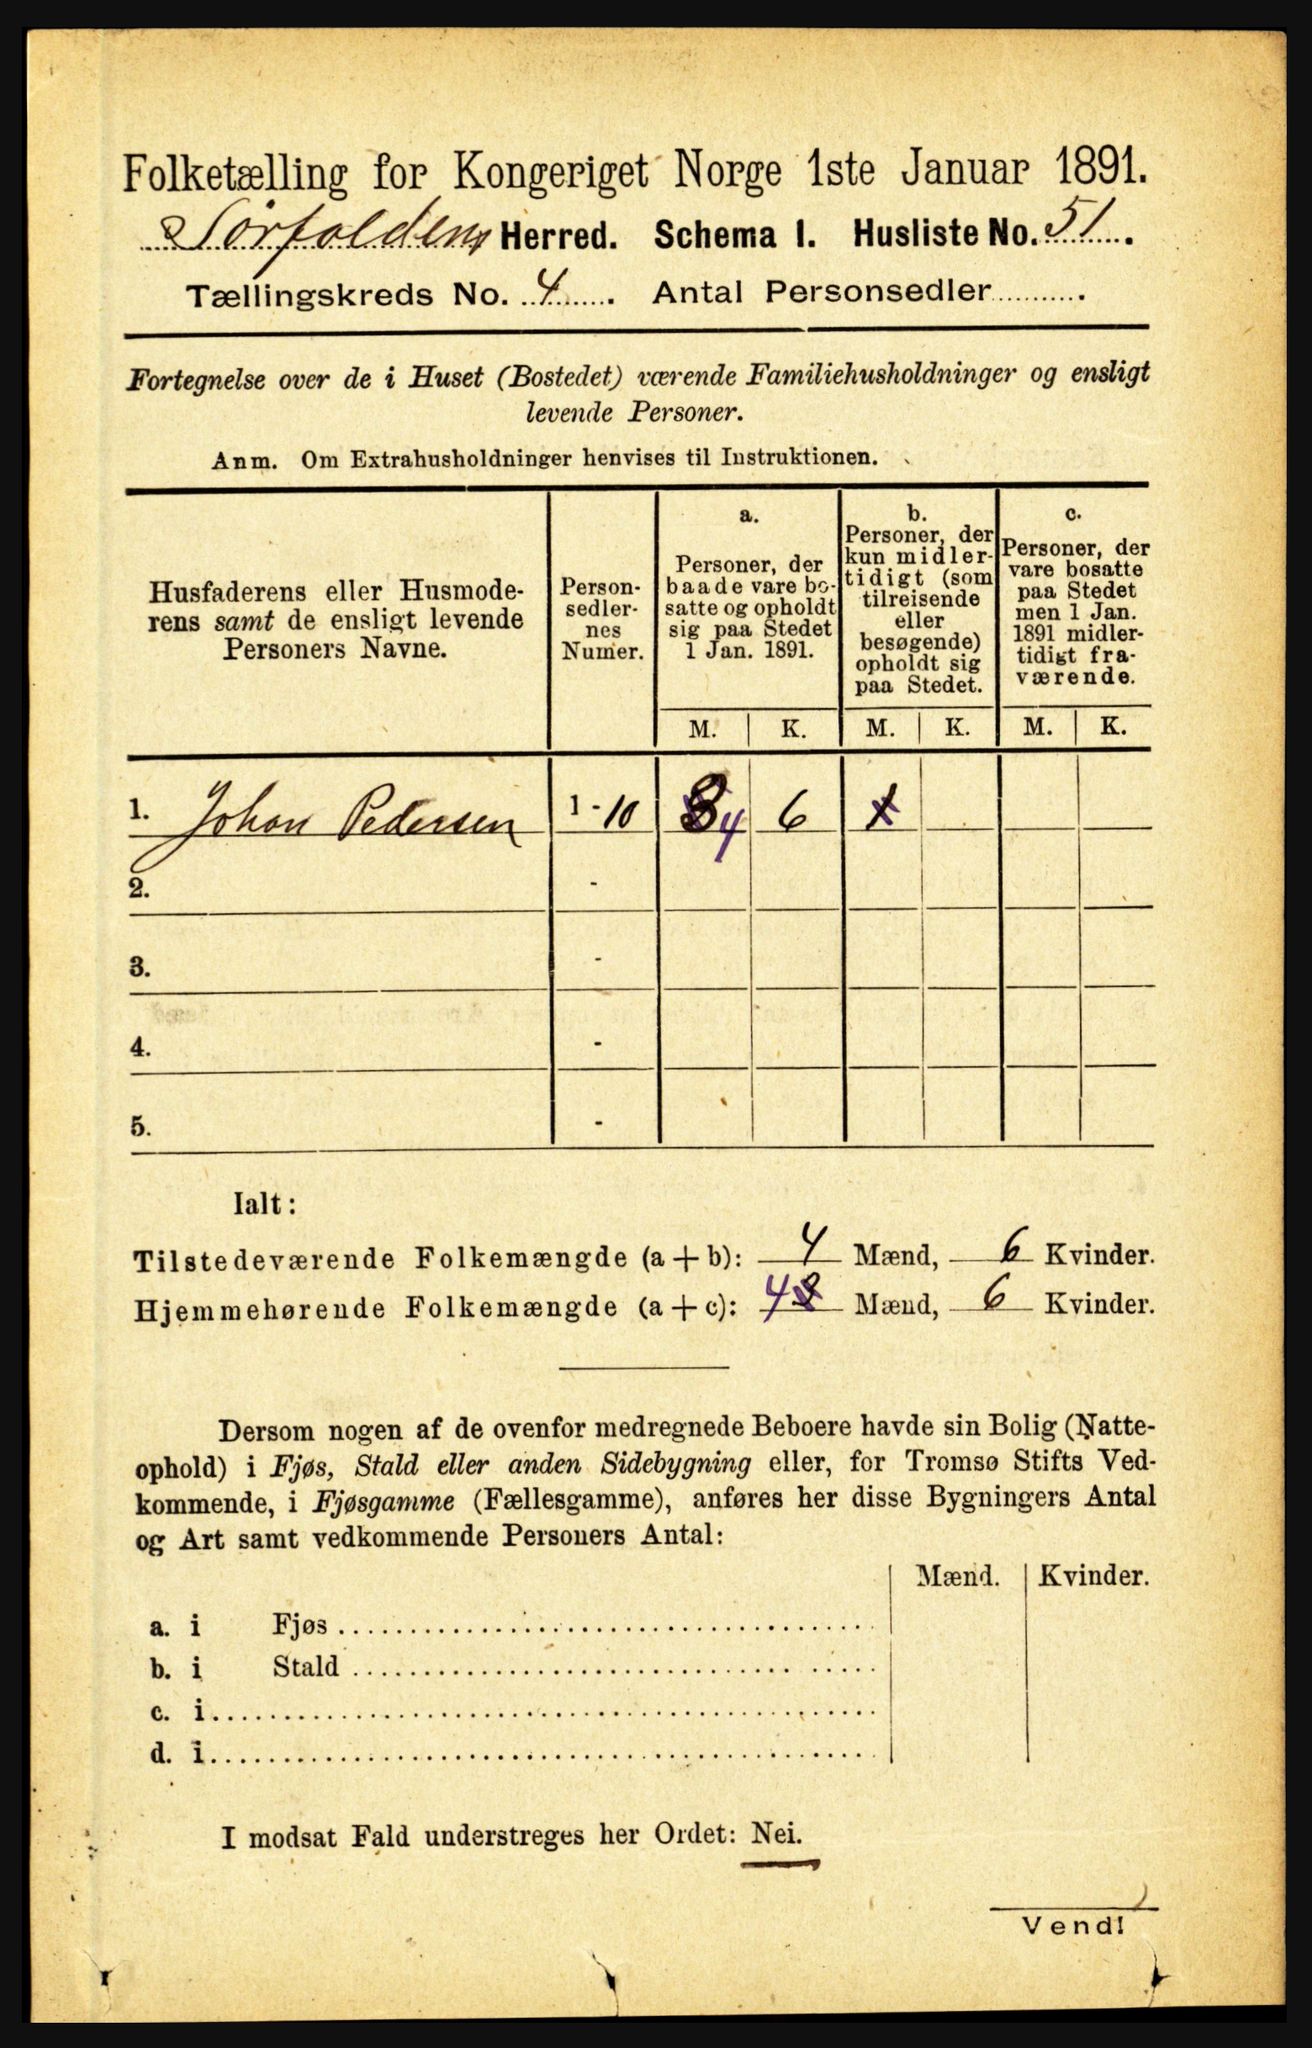 Folketælling for Kongeriget Norge 1ste Januar 1891.
Sörfoldens Herred. Schema I. Husliste No. 51.
Tællingskreds No. 4. Antal Personsedler..........
Fortegnelse over de i Huset (Bostedet) værende Familiehusholdninger og ensligt
levende Personer.
Anm. Om Extrahusholdninger henvises til Instruktionen.
Husfaderens eller Husmode-
rens samt de ensligt levende
Personers Navne.
Person-
sedler-
nes
Numer.
a.
Personer, der
baade vare bo-
satte og opholdt
sig paa Stedet
1 Jan. 1891.
b.
Personer, der
kun midler-
tidigt (som
tilreisende
eller
besøgende)
opholdt sig
paa Stedet.
c.
Personer, der
vare bosatte
paa Stedet
men 1 Jan.
1891 midler-
tidigt fra-
værende.
M. K. M. K. M. K.
1. Johan Pedersen 1-10 3 4 6 1
2. -
3. -
4. -
5. -
Ialt:
Tilstedeværende Folkemængde (a + b): 4 Mænd, 6 Kvinder.
Hjemmehørende Folkemængde (a + c): 4 3 Mænd, 6 Kvinder.
Dersom nogen af de ovenfor medregnede Beboere havde sin Bolig (Natte-
ophold) i Fjøs, Stald eller anden Sidebygning eller, for Tromsø Stifts Ved-
kommende, i Fjøsgamme (Fællesgamme), anføres her disse Bygningers Antal
og Art samt vedkommende Personers Antal:
Mænd. Kvinder.
a. i Fjøs
b. i Stald
c. i
d. i
I modsat Fald understreges her Ordet: Nei.
Vend!